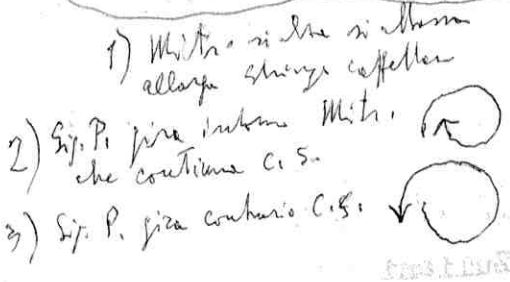 1) Mitr. si alza si abbassa
allarga stringe cappella
2) Sig. P. gira intorno Mitr.
che continua c. s.
3) Sig. P. gira contrario C.S.